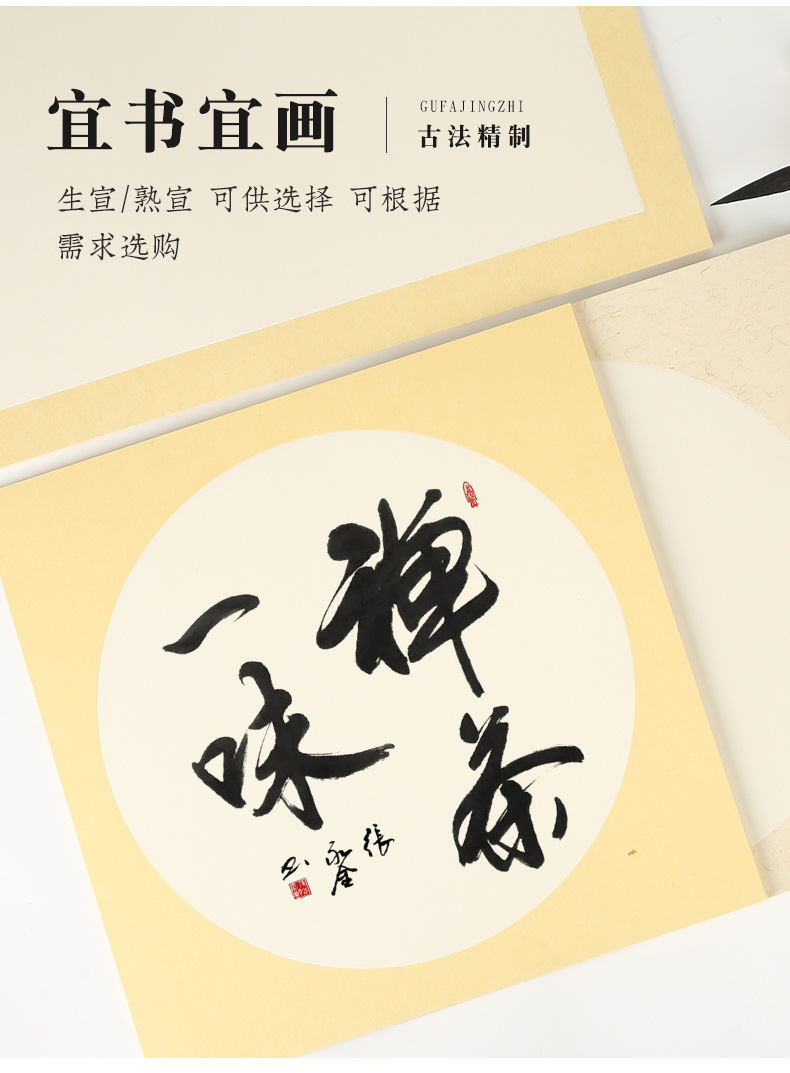 宜书宜画
GUFAJINGZHI
古法精制
生宣/熟宣 可供选择 可根据
需求选购
禅茶
一味